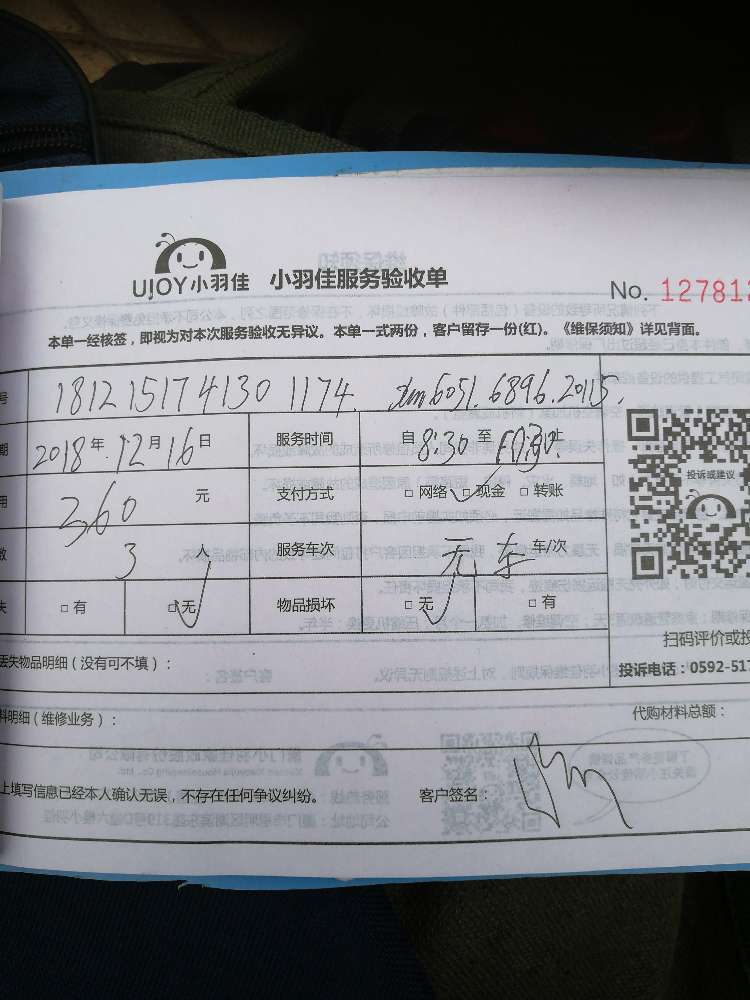 UJOY小羽佳 小羽佳服务验收单
No. 127812
本单一经核签，即视为对本次服务验收无异议。本单一式两份，客户留存一份(红)。《维保须知》详见背面。
号 181215174130 1174. xm6051.6896.20115.
期 2018年 12月16日 服务时间 自8:30至
用 360 元 支付方式 □网络 □现金 □转账
数 3 人 服务车次 无车 车/次
失 □有 □无 物品损坏 □无 □有
投诉或建议
扫码评价或投
丢失物品明细（没有可不填）：
投诉电话：0592-517
料明细（维修业务）： 代购材料总额：
上填写信息已经本人确认无误，不存在任何争议纠纷。 客户签名：